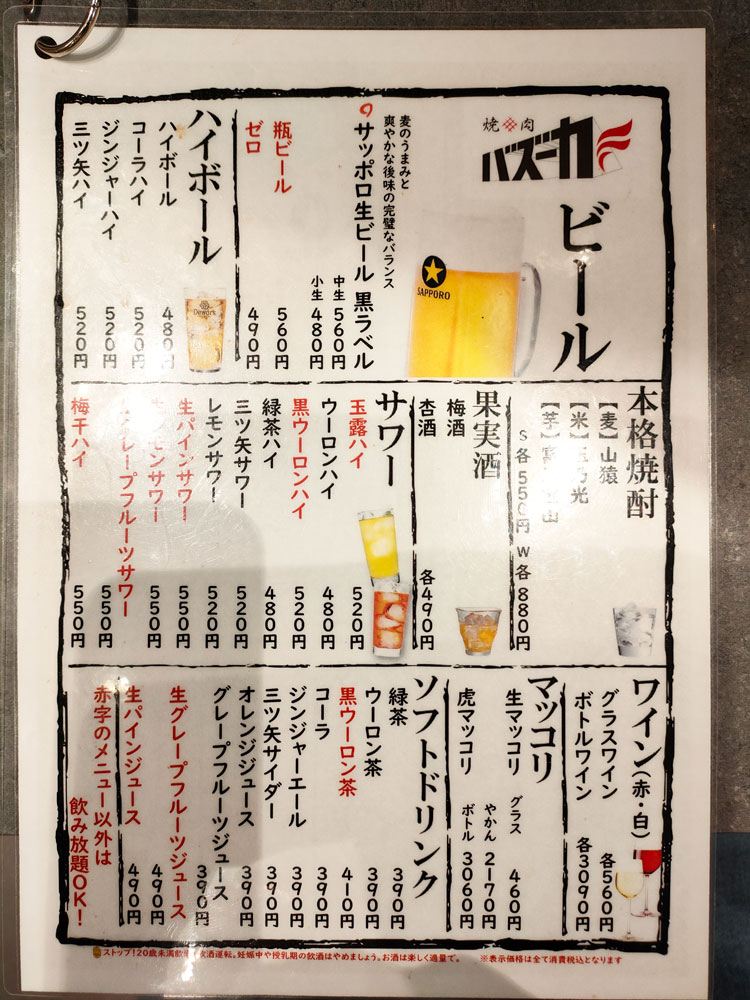 焼肉
バズーカ
ビール
麦のうまみと
爽やかな後味の完璧なバランス
サッポロ生ビール 黒ラベル
中生 560円
小生 480円
SAPPORO
瓶ビール 560円
ゼロ 490円
ハイボール
Dewar's
ハイボール 480円
コーラハイ 520円
ジンジャーハイ 520円
三ツ矢ハイ 520円
本格焼酎
【麦】山猿
【米】 光
【芋】 山
S 各 550円 W 各 880円
果実酒
梅酒
杏酒
各490円
サワー
玉露ハイ 520円
ウーロンハイ 480円
黒ウーロンハイ 520円
緑茶ハイ 480円
三ツ矢サワー 520円
レモンサワー 520円
生パインサワー 550円
レモンサワー 550円
グレープフルーツサワー 550円
梅干ハイ 550円
ワイン(赤・白)
グラスワイン 各560円
ボトルワイン 各3090円
マッコリ
生マッコリ グラス 460円
やかん 2170円
虎マッコリ ボトル 3060円
ソフトドリンク
緑茶 390円
ウーロン茶 390円
黒ウーロン茶 410円
コーラ 390円
ジンジャーエール 390円
三ツ矢サイダー 390円
オレンジジュース 390円
グレープフルーツジュース 390円
生グレープフルーツジュース 490円
生パインジュース 490円
赤字のメニュー以外は
飲み放題OK!
ストップ!20歳未満飲酒・飲酒運転。妊娠中や授乳期の飲酒はやめましょう。お酒は楽しく適量で。 ※表示価格は全て消費税込となります